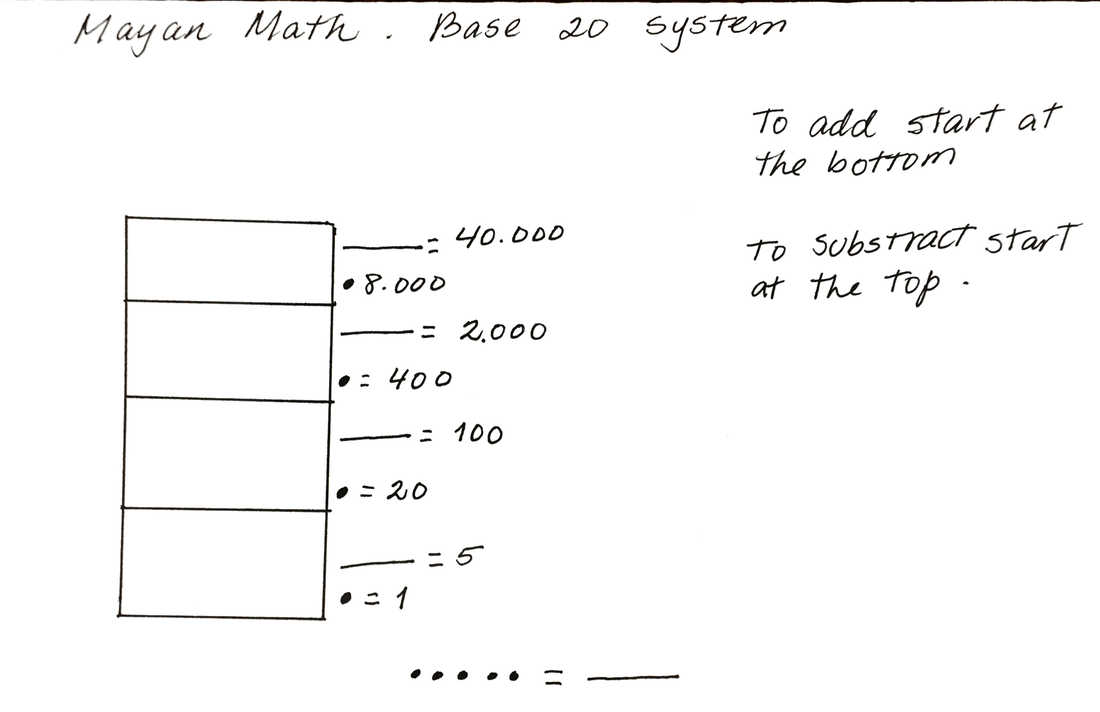 Mayan Math. Base 20 system
To add start at
the bottom
To substract start
at the top.
= 40.000
8.000
= 2.000
= 400
= 100
= 20
= 5
= 1
=